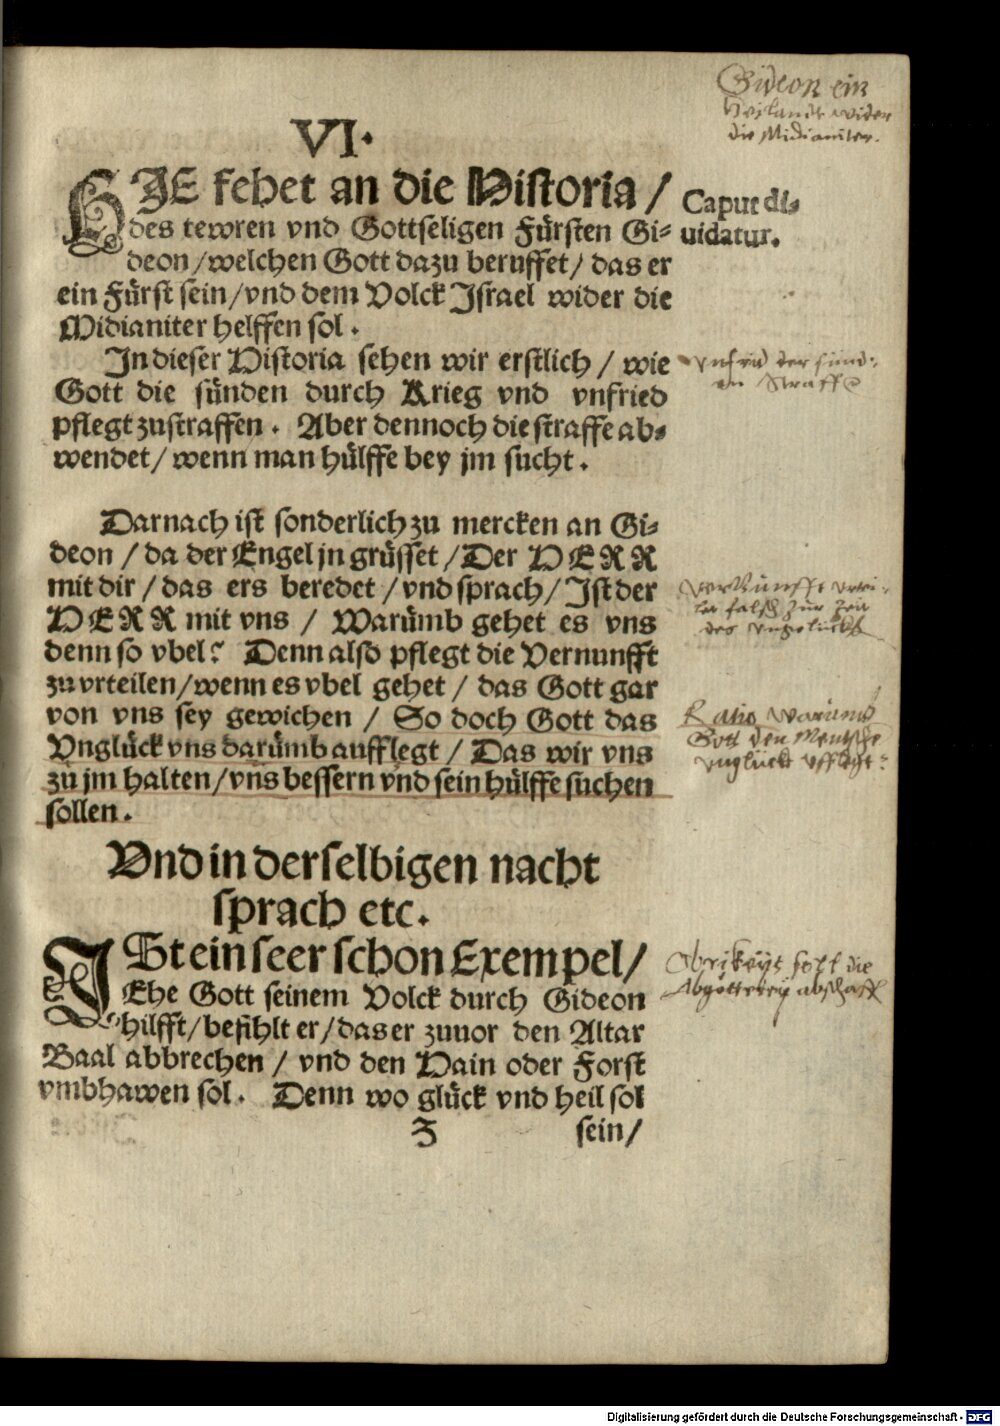 Gideon ein
Heilandt wider
die Midianiter.
VI.
HIE fehet an die Historia /
Caput di-
uidatur.
des tewren vnd Gottseligen Fürsten Gi-
deon / welchen Gott dazu beruffet / das er
ein Fürst sein / vnd dem Volck Israel wider die
Midianiter helffen sol.
In dieser Historia sehen wir erstlich / wie
Gott die sünden durch Krieg vnd vnfried
pflegt zustraffen. Aber dennoch die straffe ab-
wendet / wenn man hülffe bey jm sucht.
Vnfrid der sünd-
en Straffe
Darnach ist sonderlich zu mercken an Gi-
deon / da der Engel jn grüsset / Der HERR
mit dir / das ers beredet / vnd sprach / Ist der
HERR mit vns / Warümb gehet es vns
denn so vbel? Denn also pflegt die Vernunfft
zu vrteilen / wenn es vbel gehet / das Gott gar
von vns sey gewichen / So doch Gott das
Vnglück vns darümb aufflegt / Das wir vns
zu jm halten / vns bessern vnd sein hülffe suchen
sollen.
Vernunfft vrtei-
let falsch zur Zeit
des vnglücks
Ratio warümb
Gott den Mensche
vnglück vfflegt:
Vnd in derselbigen nacht
sprach etc.
ISt ein seer schon Exempel /
Ehe Gott seinem Volck durch Gideon
hilfft / befihlt er / das er zuuor den Altar
Baal abbrechen / vnd den Hain oder Forst
vmbhawen sol. Denn wo glück vnd heil sol
Obrikeyt soll die
Abgötterey abschaff
Z sein /
Digitalisierung gefördert durch die Deutsche Forschungsgemeinschaft - DFG